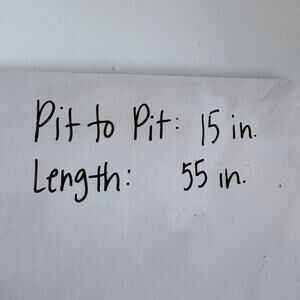 Pit to Pit: 15 in.
Length: 55 in.